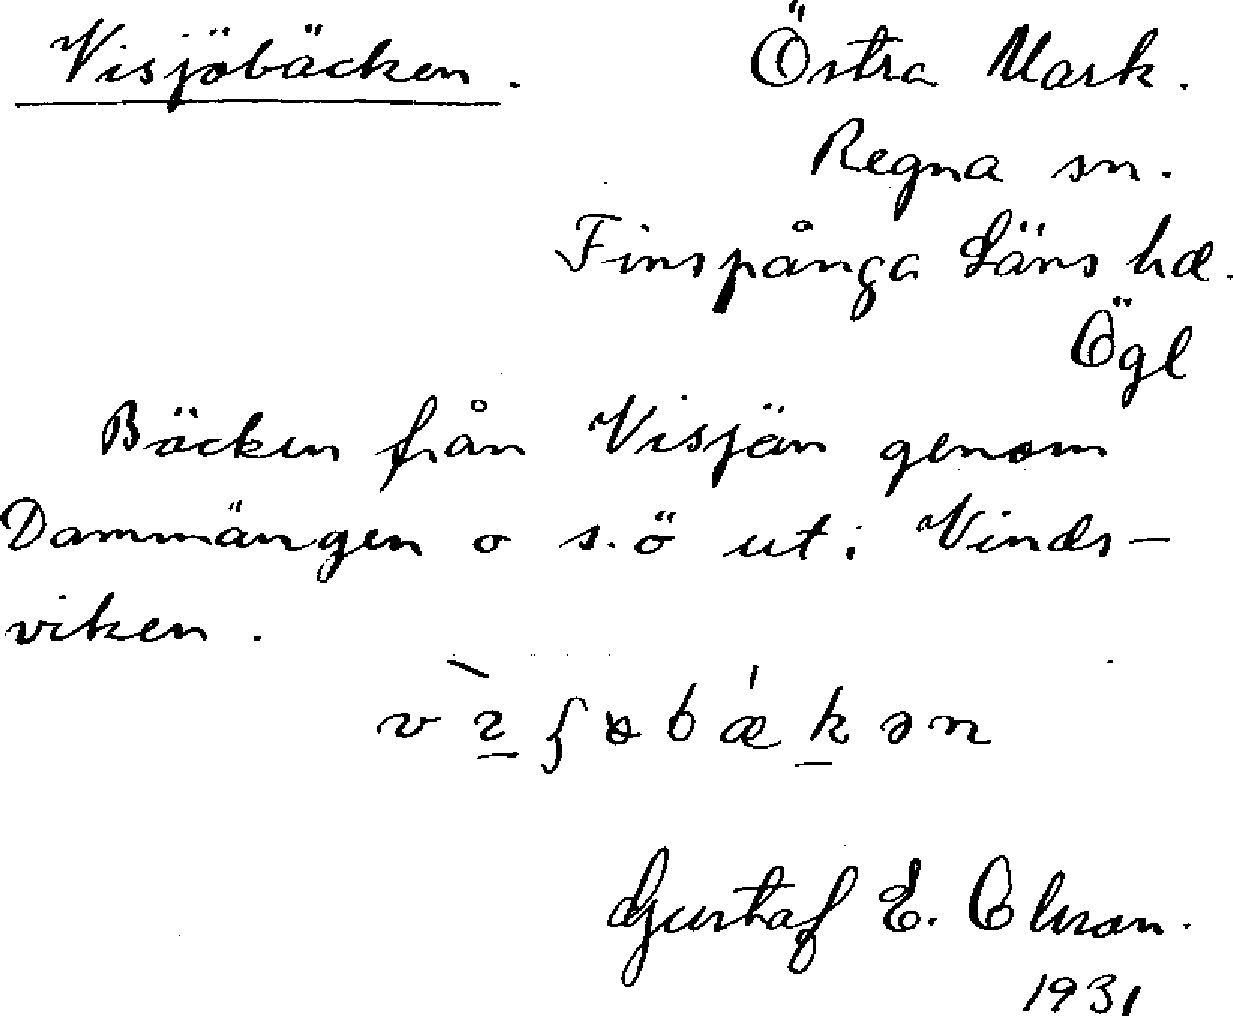 Visjöbäcken. Östra Mark.
Regna sn.
Finspånga Läns hd.
Ögl
Bäcken från Visjön genom
Dammängen o s.ö ut i Vinds-
viken.
Gustaf E. Olsson.
1931